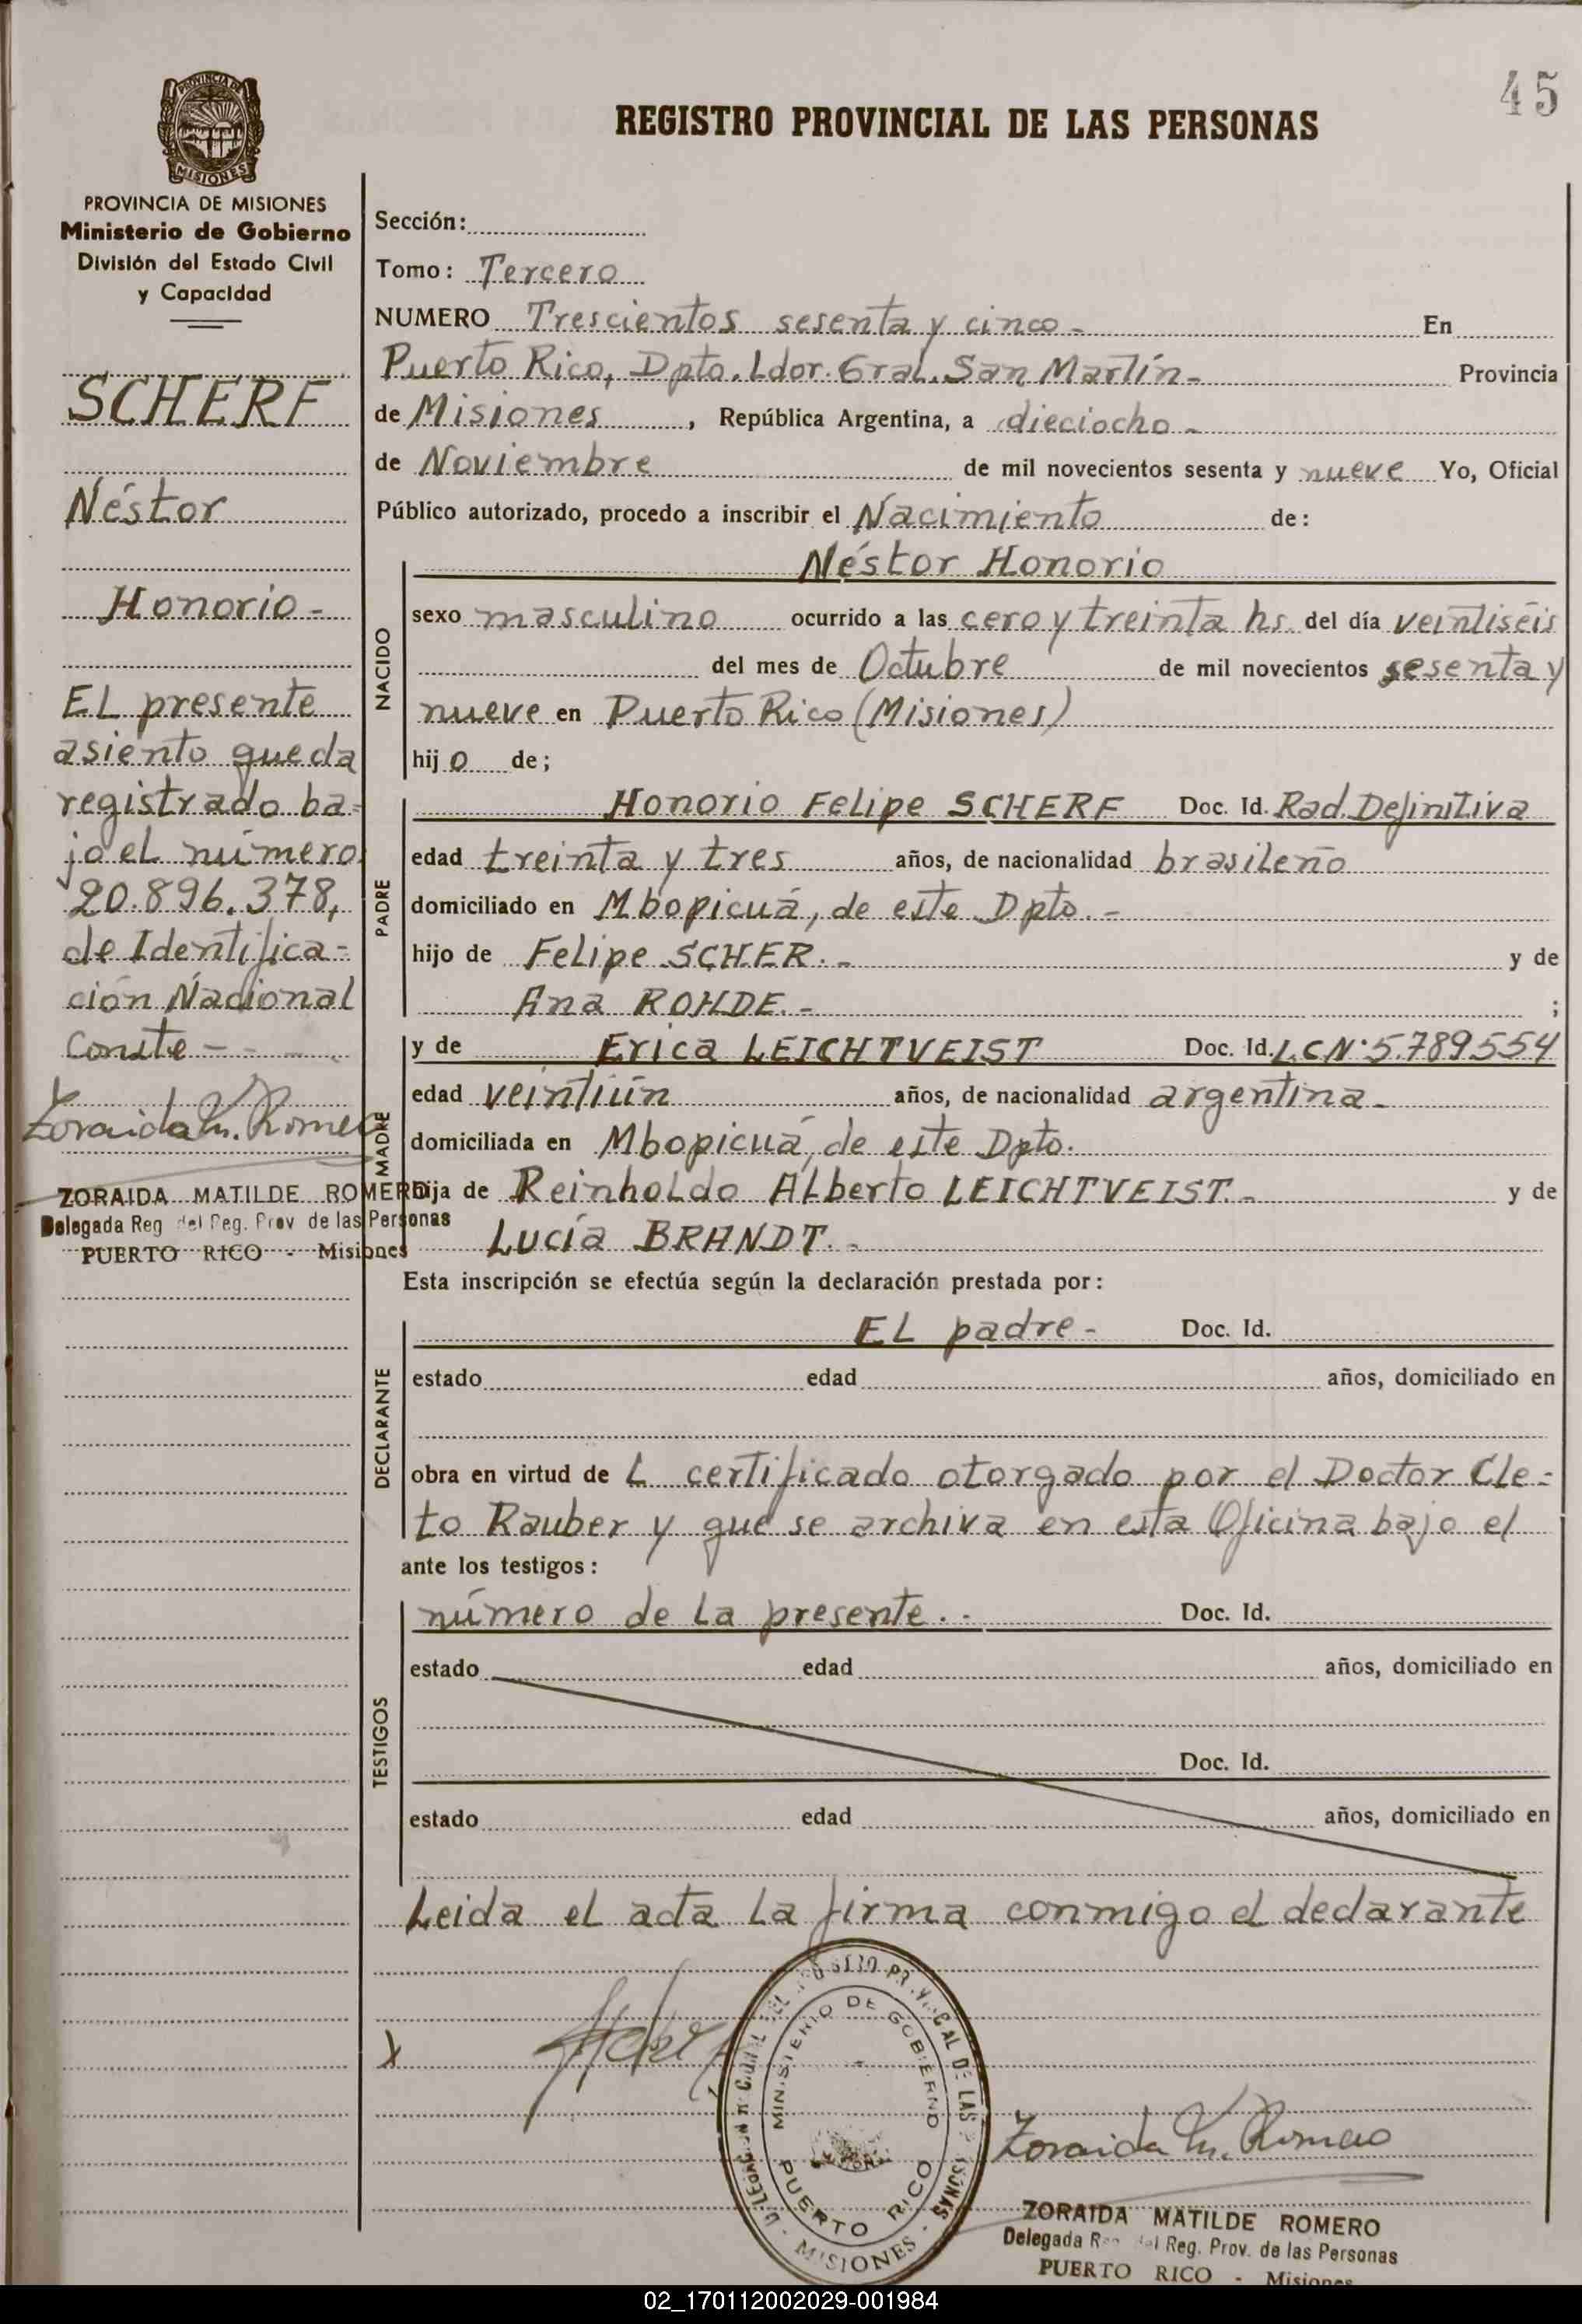 45
REGISTRO PROVINCIAL DE LAS PERSONAS
PROVINCIA DE MISIONES
MISIONES
PROVINCIA DE MISIONES
Ministerio de Gobierno
División del Estado Civil
y Capacidad
SCHERF
Néstor
Honorio -
EL presente
asiento queda
registrado ba-
jo el número
20.896.378,
de Identifica-
ción Nacional
Conste -
Zoraida M. Romero
ZORAIDA MATILDE ROMERO
Delegada Reg del Reg. Prov de las Personas
PUERTO RICO - Misiones
Sección:
Tomo: Tercero
NUMERO Trescientos sesenta y cinco - En
Puerto Rico, Dpto. Ldor. Gral. San Martín - Provincia
de Misiones, República Argentina, a dieciocho -
de Noviembre de mil novecientos sesenta y nueve Yo, Oficial
Público autorizado, procedo a inscribir el Nacimiento de:
NACIDO
Néstor Honorio
sexo masculino ocurrido a las cero y treinta hs. del día veintiséis
del mes de Octubre de mil novecientos sesenta y
nueve en Puerto Rico (Misiones)
hijo de;
PADRE
Honorio Felipe SCHERF Doc. Id. Rad. Definitiva
edad treinta y tres años, de nacionalidad brasileño
domiciliado en Mbopicuá, de este Dpto. -
hijo de Felipe SCHER. - y de
Ana ROHDE. - ;
MADRE
y de Erica LEICHTVEIST Doc. Id. L.C N° 5.789554
edad veintiún años, de nacionalidad argentina -
domiciliada en Mbopicuá, de este Dpto.
hija de Reinholdo Alberto LEICHTVEIST. - y de
Lucía BRANDT. -
Esta inscripción se efectúa según la declaración prestada por:
DECLARANTE
EL padre - Doc. Id.
estado edad años, domiciliado en
obra en virtud de L certificado otorgado por el Doctor Cle-
to Rauber y que se archiva en esta Oficina bajo el
ante los testigos:
TESTIGOS
número de La presente. - Doc. Id.
estado edad años, domiciliado en
Doc. Id.
estado edad años, domiciliado en
Leida el acta La firma conmigo el declarante
X
MINISTERIO DE GOBIERNO
PUERTO RICO
- MISIONES -
Zoraida M. Romero
ZORAIDA MATILDE ROMERO
Delegada Reg. del Reg. Prov. de las Personas
PUERTO RICO - Misiones
02_170112002029-001984